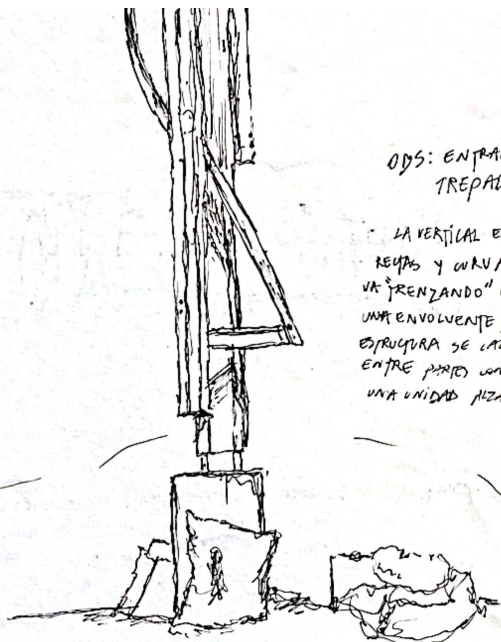 OBS: ENTRA
TREPA
LA VERTICAL E
RECTAS Y CURVA
VA "TRENZANDO"
UNA ENVOLVENTE
ESTRUCTURA SE
ENTRE PARTES
UNA UNIDAD ALZA